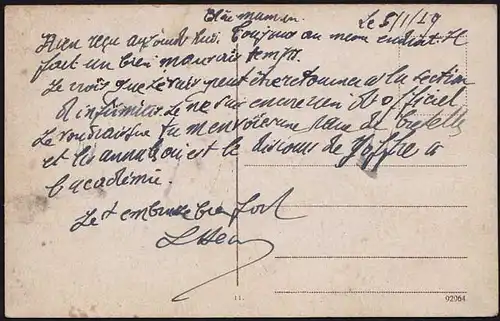 Chère Maman Le 5/1/19
Rien reçu aujourd'hui. Toujours au même endroit. Il
fait un bien mauvais temps.
Je crois que je vais peut être retourner à la section
d'infirmiers. Je ne sais encore rien d'officiel
Je voudrais que tu m'envoies une paire de bretelle
et les annales où est le discours de Joffre à
l'académie.
Je t'embrasse bien fort
11. 92064